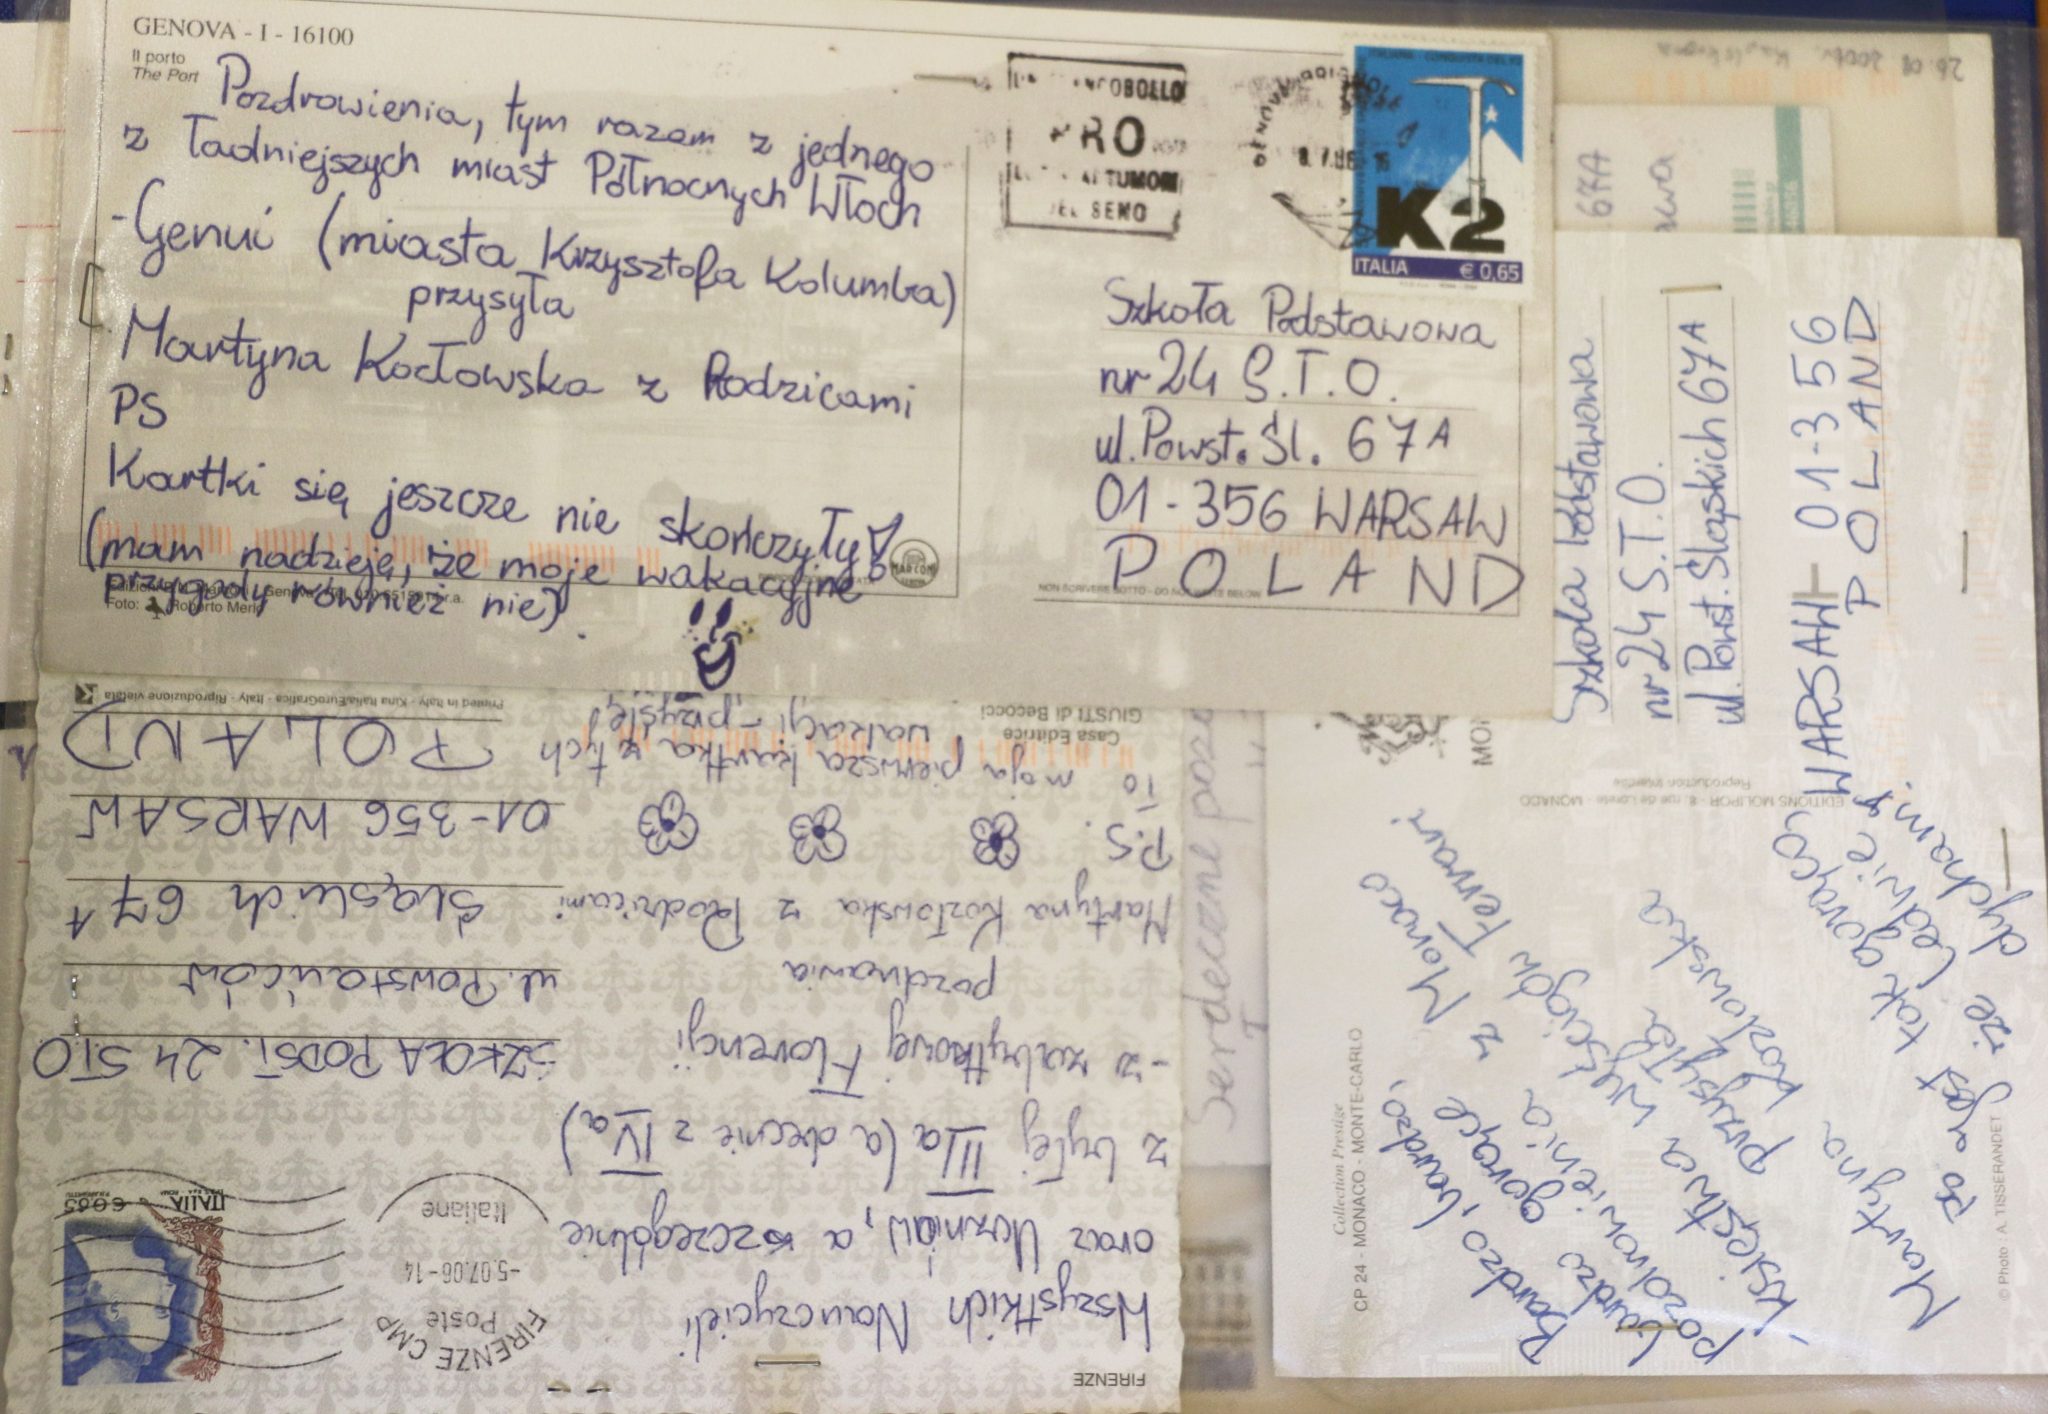 GENOVA - I - 16100
Il porto
The Port
Pozdrowienia, tym razem z jednego
z ładniejszych miast Północnych Włoch
-Genui (miasta Krzysztofa Kolumba)
przysyła
Martyna Kozłowska z Rodzicami
PS
Kartki się jeszcze nie skończyły!
(mam nadzieję, że moje wakacyjne
przygody również nie)
Foto: Roberto Merlo
MARCONI
NON SCRIVERE SOTTO - DO NOT WRITE BELOW
PRO
TUMORI
DEL SENO
K2
ITALIA € 0,65
Szkoła Podstawowa
nr 24 S.T.O.
ul. Powst. Śl. 67A
01-356 WARSAW
POLAND
26.08.2006r.
67A
Szkoła Podstawowa
nr 24 S.T.O.
ul. Powst. Śląskich 67A
WARSAW 01-356
POLAND
EDITIONS MOLIPOR - 8, rue de Lorete - MONACO
Reproduction interdite
Collection Prestige
CP 24 - MONACO - MONTE-CARLO
© Photo A. TISSERANDET
Bardzo, bardzo,
bardzo gorące
pozdrowienia z Monaco
- księstwa wyścigów Ferrari
przysyła
Martyna Kozłowska
PS jest tak gorąco,
że ledwie
dycham.
Serdeczne
FIRENZE
Wszystkich Nauczycieli
oraz Uczniów, a szczególnie
z byłej IIIa (a obecnie z IVa)
-z zabytkowej Florencji
pozdrawia
Martyna Kozłowska z Rodzicami
P.S.
To moja pierwsza kartka z tych
wakacji - przysięgę!
Casa Editrice
GIUSTI di Becocci
FIRENZE CMP
Poste
-5.07.06-14
Italiane
ITALIA
€0,65
SZKOŁA PODST. 24 STO
ul. Powstańców
Śląskich 67A
01-356 WARSAW
POLAND
Printed in Italy - Kina Italia/EuroGrafica - Italy - Riproduzione vietata